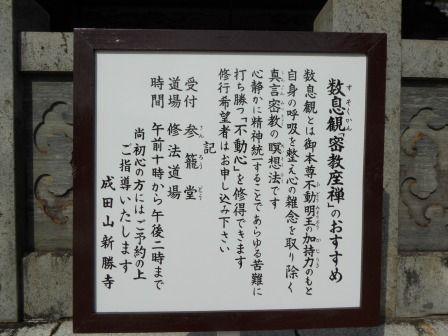 数息観「密教座禅」のおすすめ
数息観とは御本尊不動明王の加持力のもと
自身の呼吸を整え心の雑念を取り除く
真言密教の瞑想法です
心静かに精神統一することであらゆる苦難に
打ち勝つ「不動心」を修得できます
修行希望者はお申し込み下さい
記
受付 参籠堂
道場 修法道場
時間 午前十時から午後二時まで
尚初心の方にはご予約の上
ご指導いたします
成田山新勝寺